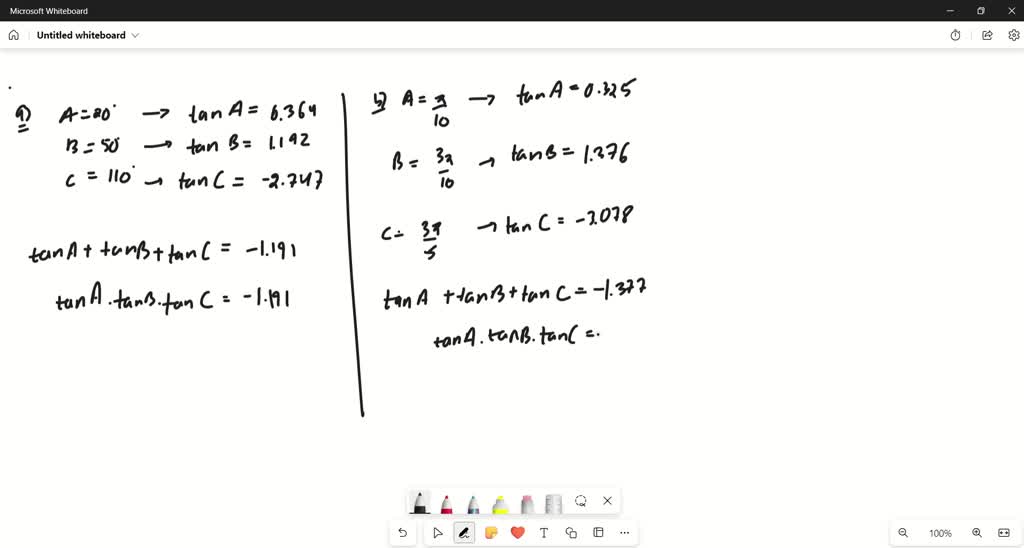 Microsoft Whiteboard
Untitled whiteboard
a) A=20° → tan A = 0.364
B = 50° → tan B = 1.192
C = 110° → tan C = -2.747
tan A + tan B + tan C = -1.191
tan A . tan B . tan C = -1.191
b) A = π/10 → tan A = 0.325
B = 3π/10 → tan B = 1.376
C = 3π/5 → tan C = -3.078
tan A + tan B + tan C = -1.377
tan A . tan B . tan C =
T
100%